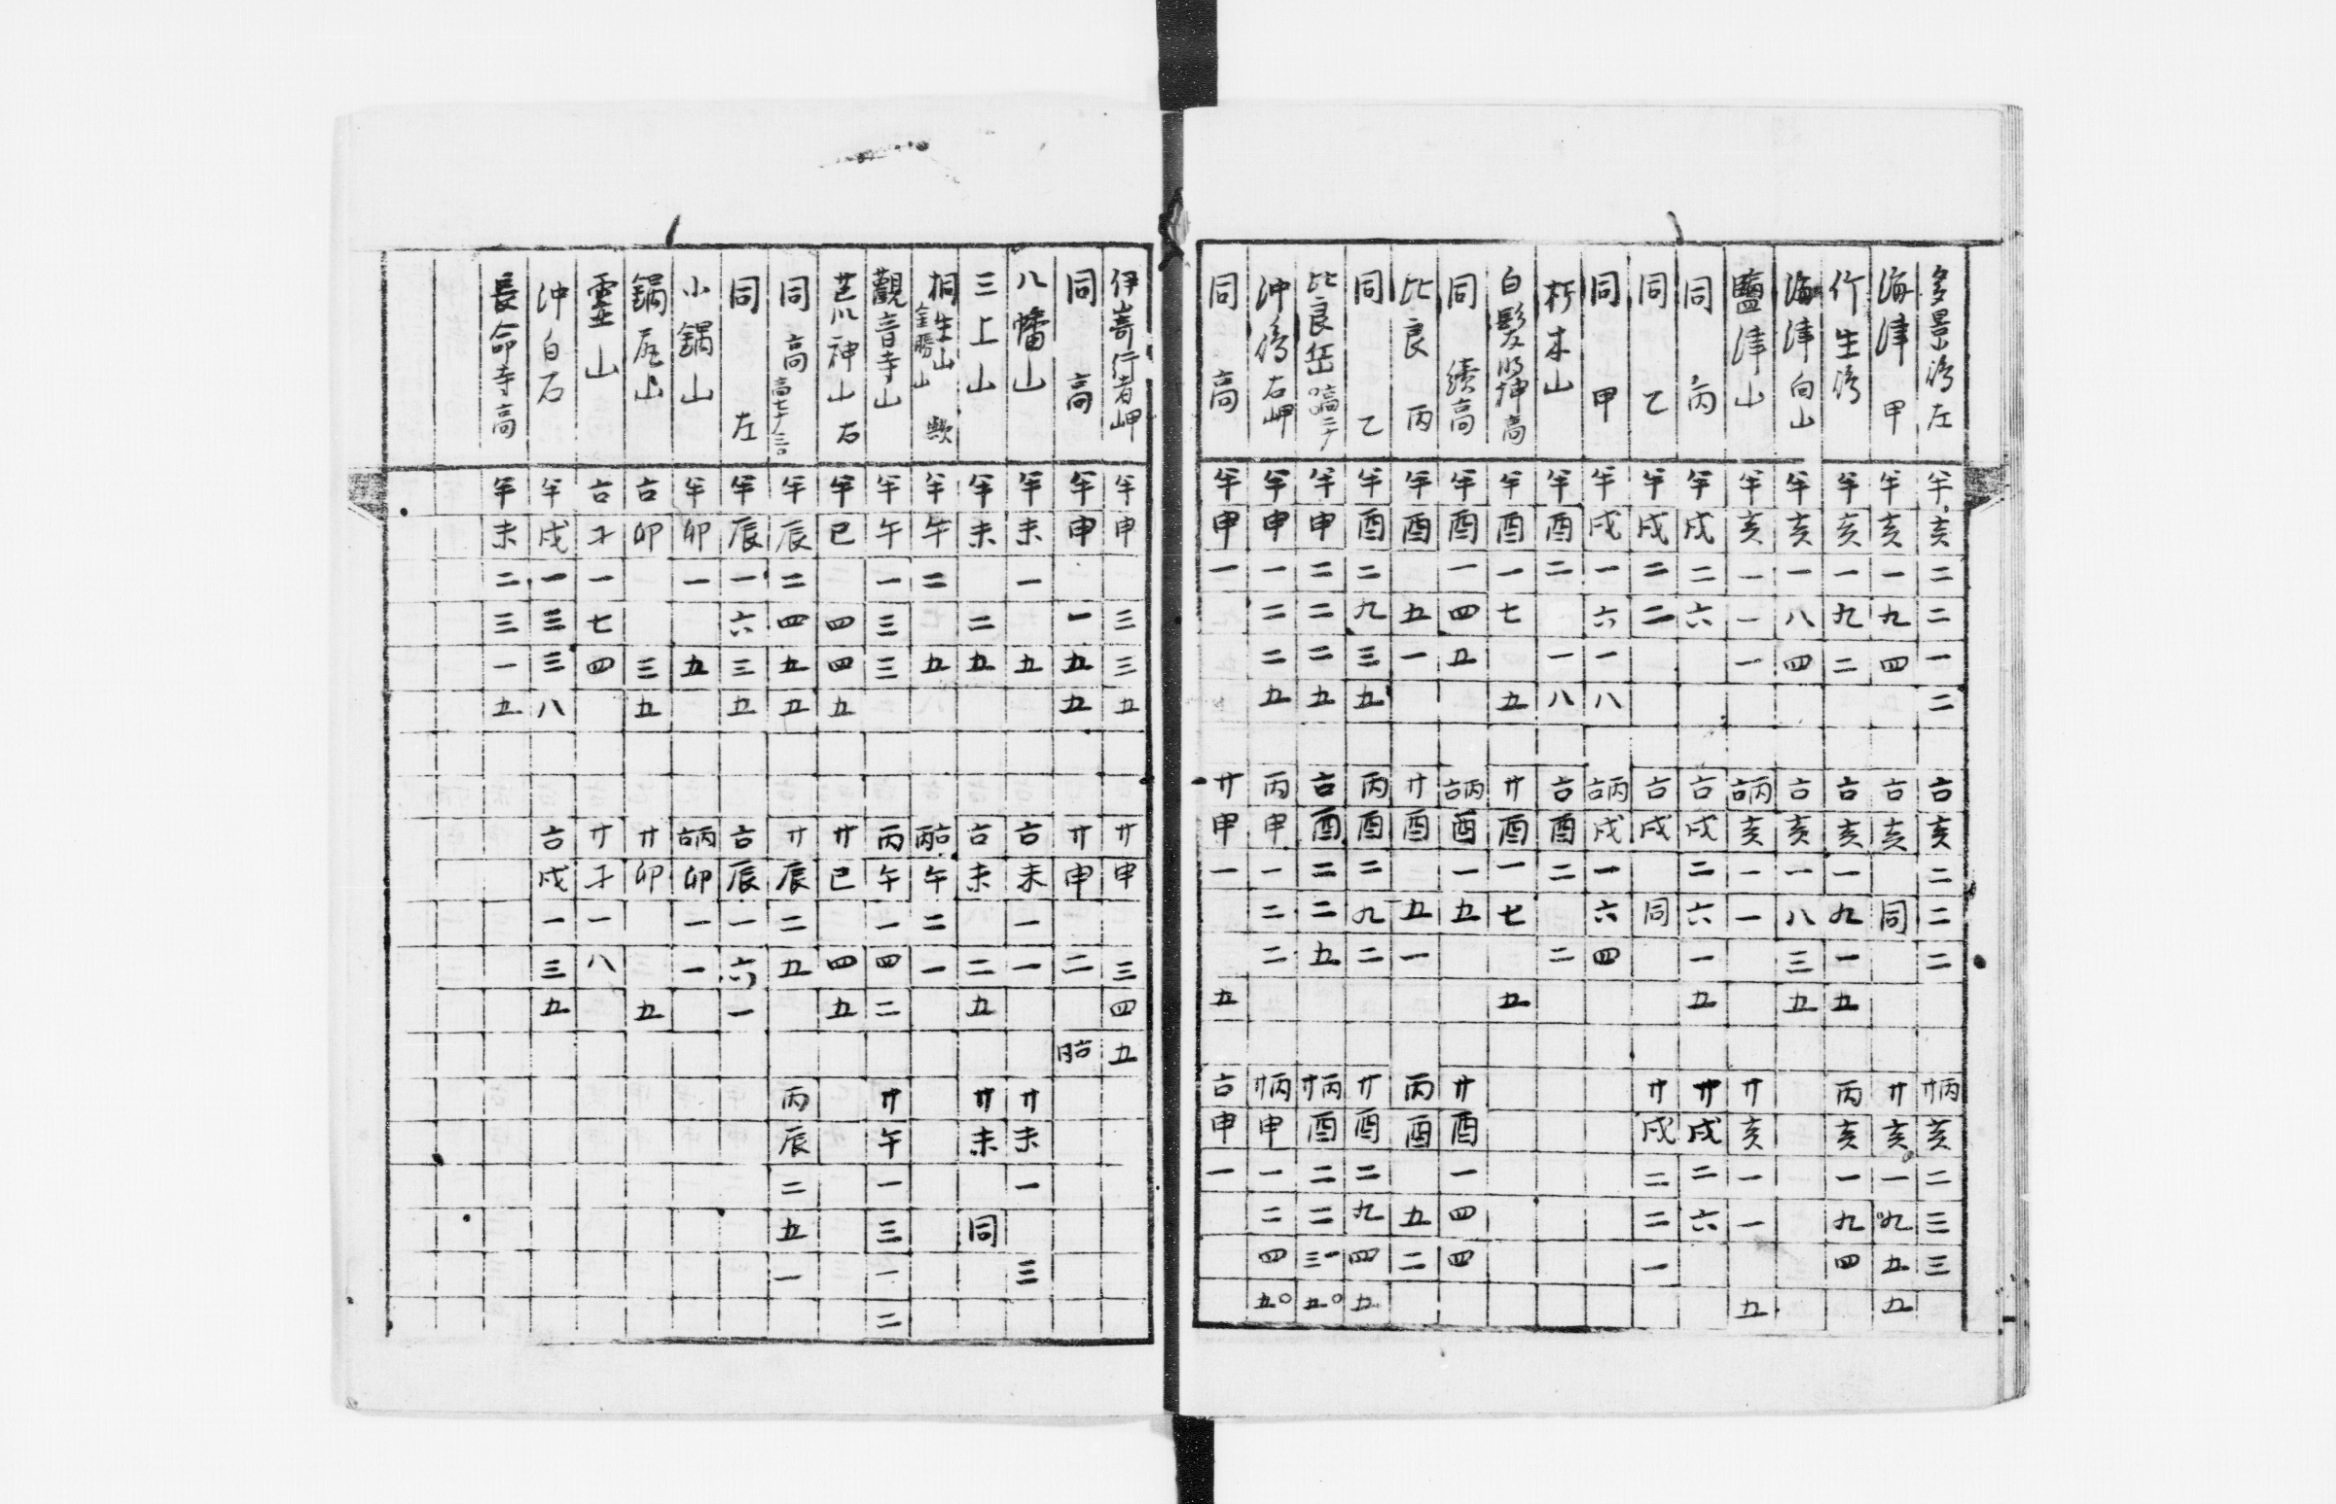 多景嶋左 半亥二二一二 古亥二二二 廾丙亥二三三
海津甲 半亥一九四 古亥同 廾亥一九五五
竹生嶋 半亥一九二 古亥一九一五 丙亥一九四
海津向山 半亥一八四 古亥一八三五
鹽津山 半亥一一一 古丙亥一一 廾亥一一五
同丙 半戌二六 古戌二六一五 廾戌二六
同乙 半戌二二 古戌同 廾戌二二一
同甲 半戌一六一八 古丙戌一六四
朽木山 半酉二一八 古酉二二
白髪明神高 半酉一七五 廾酉一七五
同續高 半酉一四五 古丙酉一五 廾酉一四四
比良丙 半酉五一 廾酉五一 丙酉五二
同乙 半酉二九三五 丙酉二九二 廾酉二九四五
比良岳 半申二二二五 古酉二二五 廾丙酉二二三一五
沖嶋右岬 半申一二二五 丙申一二二 廾丙申一二四五
同高 半申一 廾申一五 古申一
伊嵜行者岬 半申三三五 廾申三四五
同高 半申一五五 廾申二
八幡山 半未一五 古未一一 廾未一三
三上山 半未二五 古未二五 廾未同
桐生山 金勝山歟 半午二五 丙古午二一
觀音寺山 半午一三三 丙午一四二 廾午一三一二
荒神山右 半巳四四五 廾巳四五
同高 半辰二四五五 廾辰二五 丙辰二五一
同左 半辰一六三五 古辰一六一
小鍋山 半卯一五 古丙卯一一
鍋尻山 古卯三五 廾卯五
靈山 古子一七四 廾子一八
沖白石 半戌一三三八 古戌一三五
長命寺高 半未二三一五